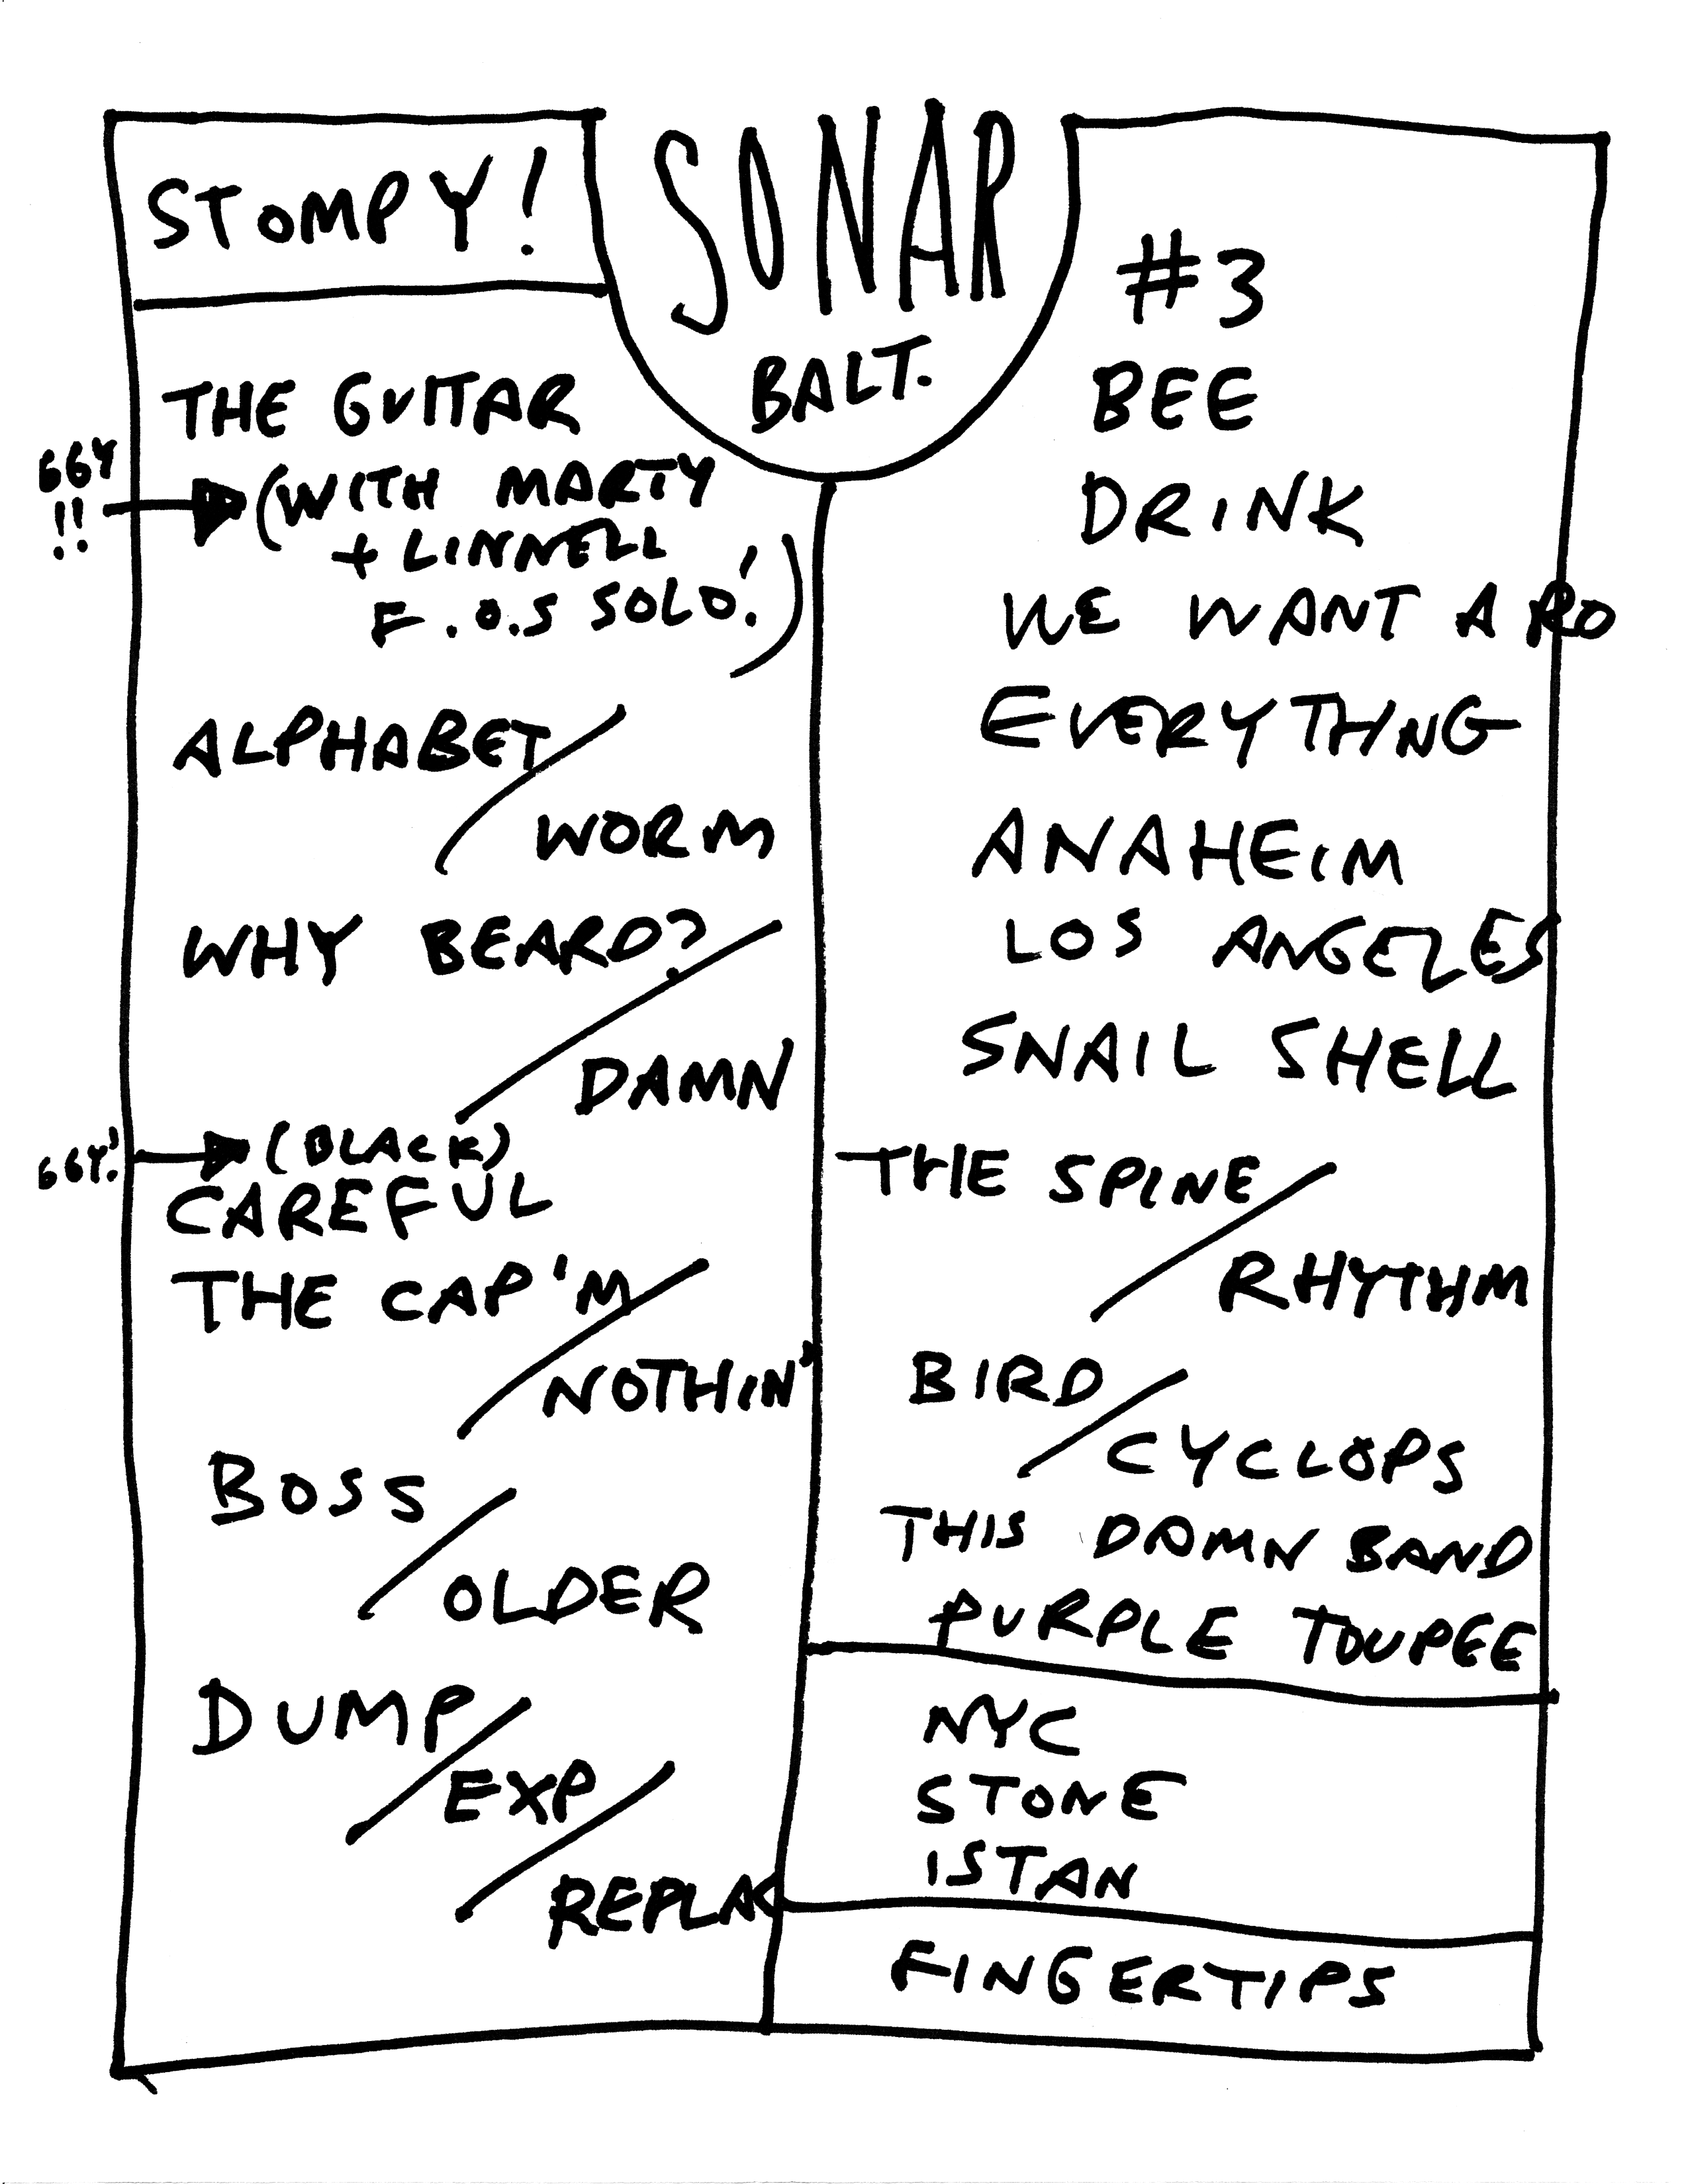 STOMPY!
SONAR
BALT.
THE GUITAR
GGY
!!
(WITH MARTY
+ LINNELL
F.O.S SOLO!)
ALPHABET /
WORM
WHY BEARD? /
DAMN
GGY!
(BLACK)
CAREFUL
THE CAP'M /
NOTHIN'
BOSS /
OLDER
DUMP /
EXP /
REPLAC
#3
BEE
DRINK
WE WANT A RO
EVERYTHNG
ANAHEIM
LOS ANGELES
SNAIL SHELL
THE SPINE /
RHYTHM
BIRD /
CYCLOPS
THIS DAMN BAND
PURPLE TOUPEE
NYC
STONE
ISTAN
FINGERTIPS